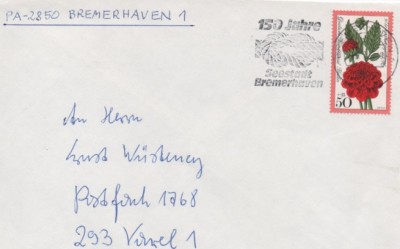 PA-2850 BREMERHAVEN 1
150 Jahre
Seestadt
Bremerhaven
50
An Herrn
Ernst Wüsteney
Postfach 1768
293 Varel 1